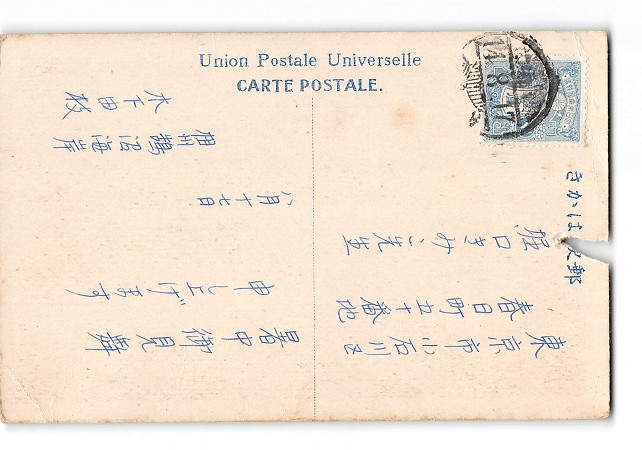 Union Postale Universelle
CARTE POSTALE.
きかは 郵
東京市小石川区
春日町五十番地
堀口 先生
暑中御見舞
申し上げます
八月十七日
相州鵠沼海岸
木下